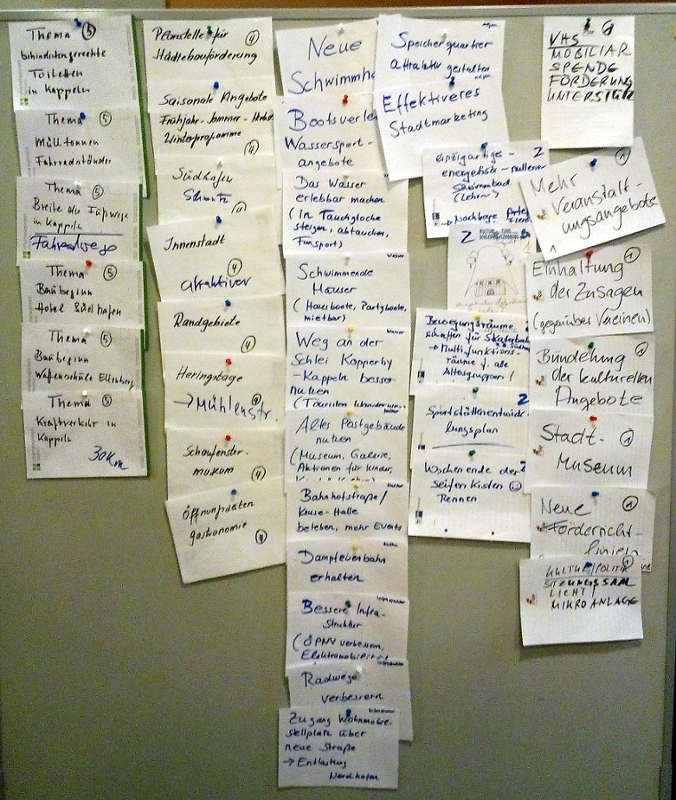 Thema 5
behindertengerechte
Toiletten
in Kappeln
Thema 5
Mülltonnen
Fahrradständer
Thema 5
Breite der Fußwege
in Kappeln
Fahrradwege
Thema 5
Baubeginn
Hotel Südhafen
Thema 5
Baubeginn
Waffenschule Ellenberg
Thema 5
Kraftverkehr in
Kappeln
30Km
Planstelle für 4
Städtebauförderung
Saisonale Angebote
Frühjahr-Sommer-Herbst
Winterprogramme 4
Südhafen
4
Innenstadt
4
attraktiver
Randgebiete
4
Heringstage
4
→ Mühlenstr.
Schaufenster-
museum
4
Öffnungszeiten
gastronomie 4
Neue
Schwimmha
Bootsverlei
Wassersport-
angebote
Das Wasser
erlebbar machen
(In Tauchglocke
steigen, abtauchen,
Funsport)
Schwimmende
Häuser
(Hausboote, Partyboote,
mietbar)
Weg an der
Schlei Kopperby
- Kappeln besser
nutzen
(Touristen Wanderweg
Altes Postgebäude
nutzen
(Museum, Galerie,
Aktionen für Kinder,
Bahnhofstraße/
Halle
beleben, mehr Events
Dampfeisenbahn
erhalten
Bessere Infra-
struktur
(ÖPNV verbessern,
Elektromobilität
Radwege
verbessern
Zugang Wohnmobil-
stellplatz über
neue Straße
→ Entlastung
Nordhafen
Speicherquartier
attraktiv gestalten
Effektiveres
Stadtmarketing
einzigartiges - 2
energetisch-
Schwimmbad
2
Bewegungsräume
schaffen für Skaterbahn
→ Multifunktions-
räume f. alle
Altersgruppen!
2
Sportstättenentwick-
lungsplan
Wochenende der 2
Seifenkisten
Rennen
VHS 1
MOBILIAR
SPENDE
FÖRDERUNG
UNTERSTÜTZ
Mehr 1
Veranstalt-
ungsangebote
Einhaltung 1
der Zusagen
(gegenüber Vereinen)
Bündelung 1
der kulturellen
Angebote
Stadt- 1
Museum
Neue 1
Förderricht-
linien
KULTUR/POLITIK 1
SITZUNGSSAAL
LICHT/
MIKROANLAGE